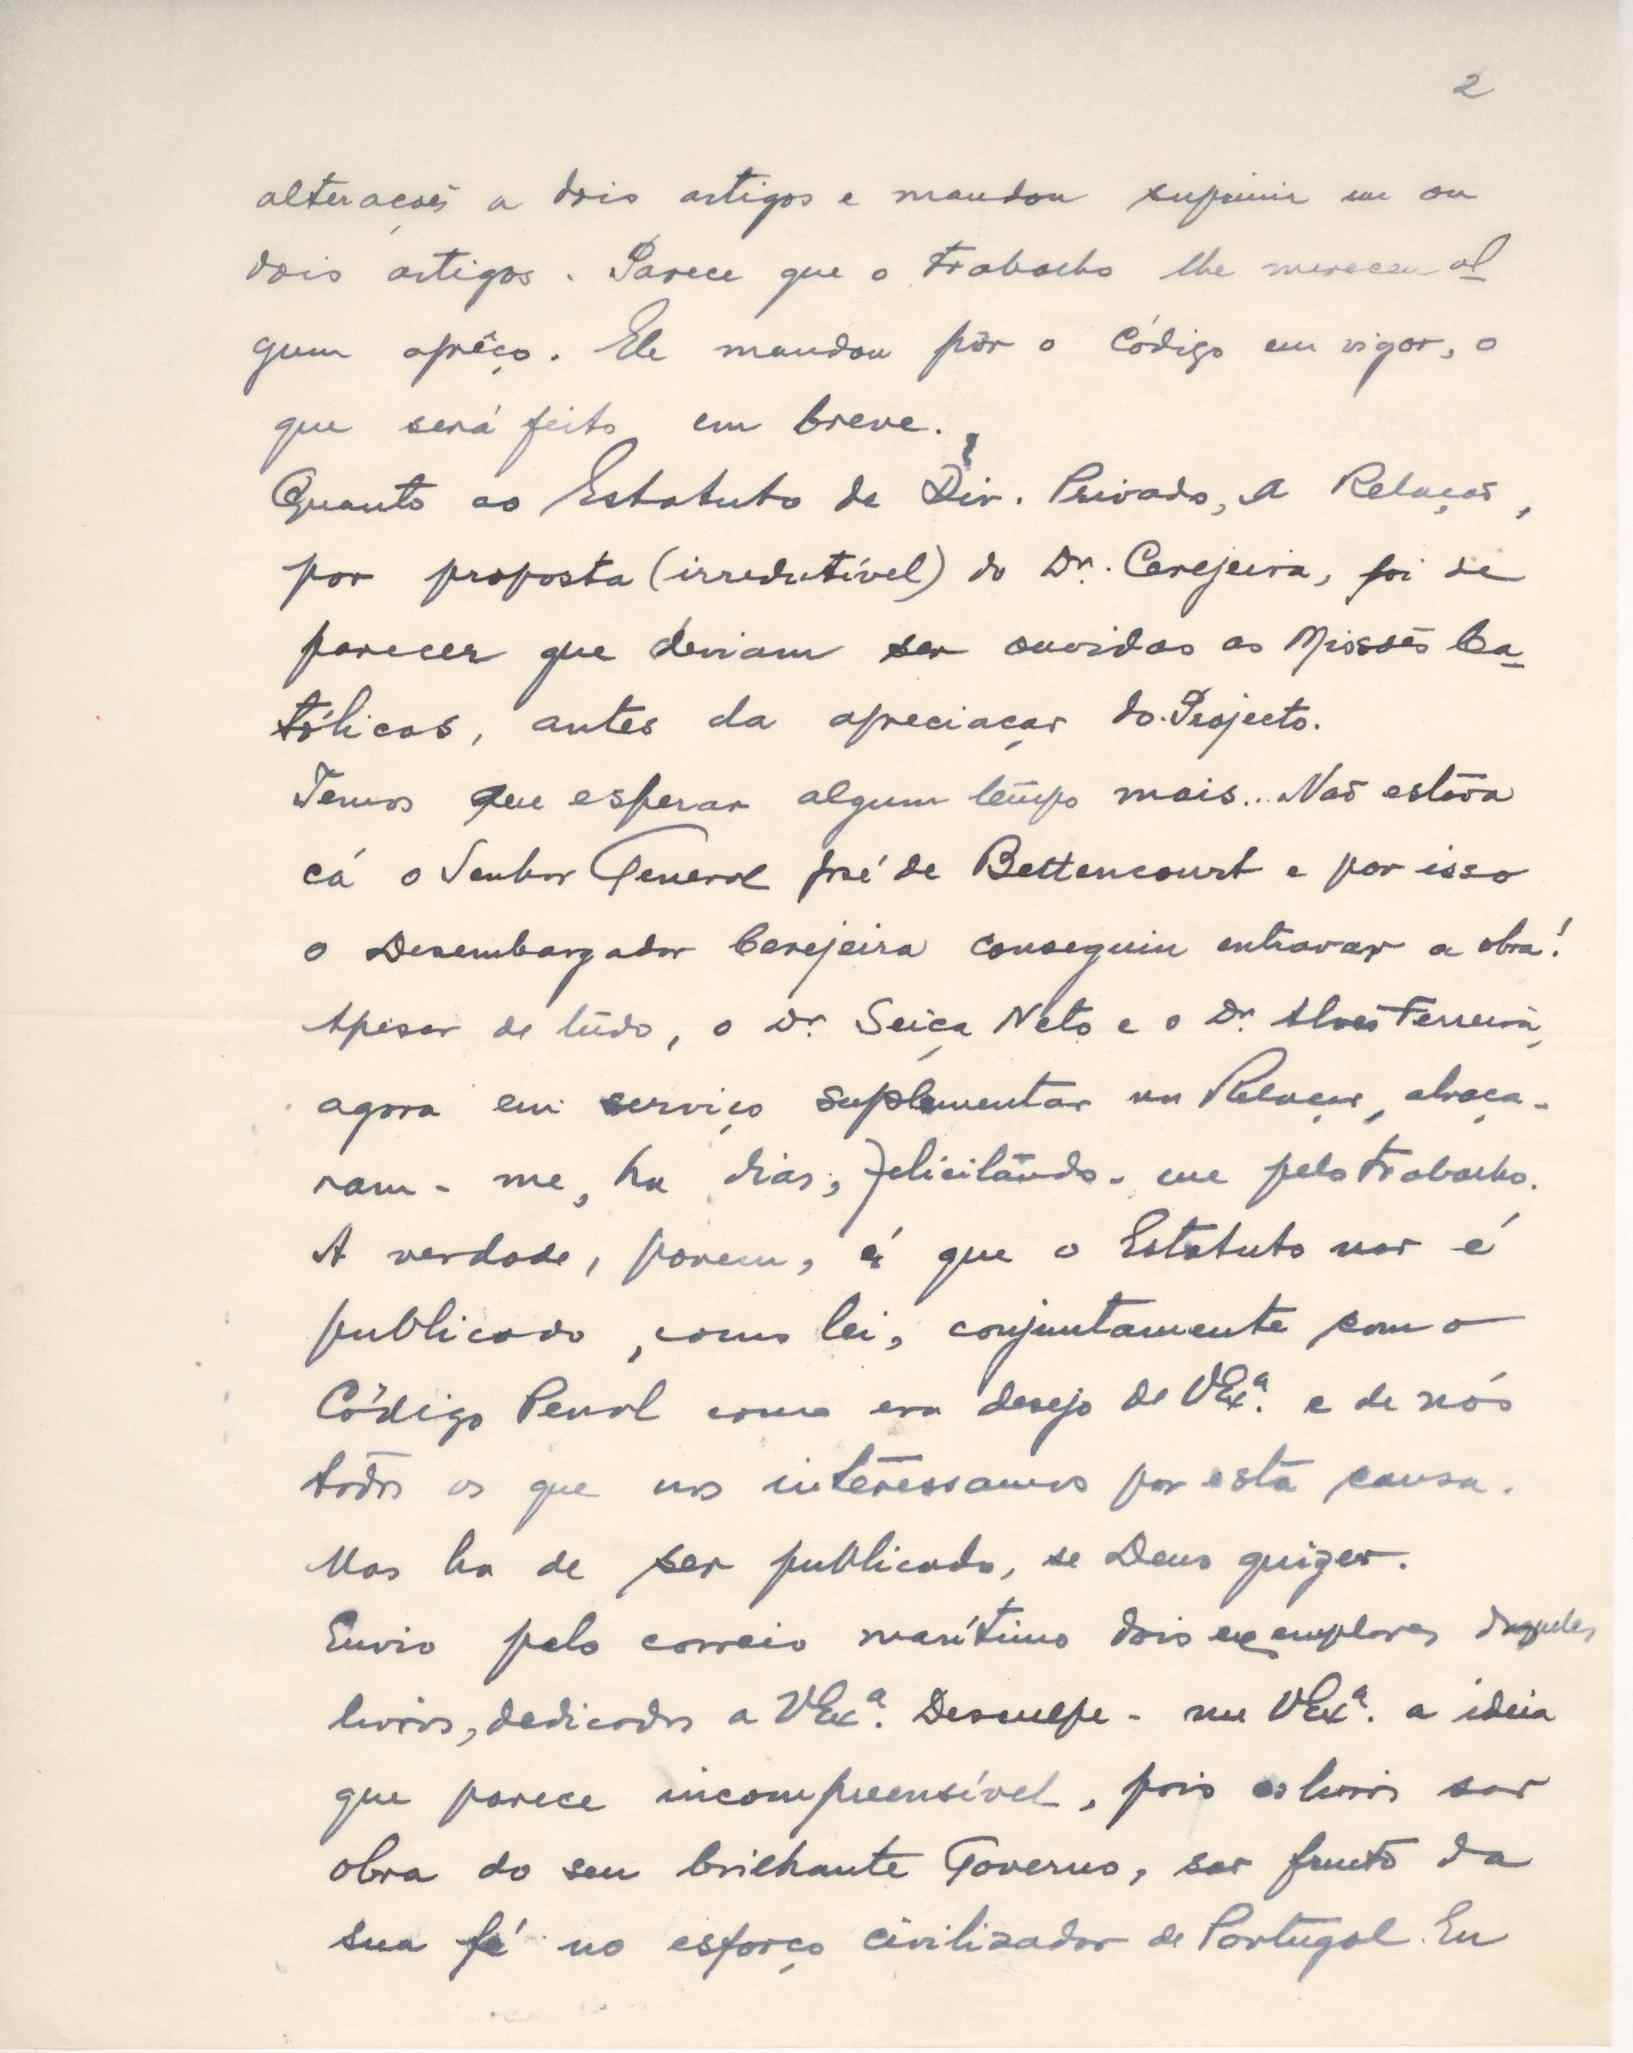 2
alterações a dois artigos e mandou suprimir um ou
dois artigos. Parece que o trabalho lhe mereceu al-
gum aprêço. Ele mandou pôr o Código em vigor, o
que será feito em breve.
Quanto ao Estatuto de Dir. Privado, a Relação,
por proposta (irredutível) do Dr. Cerejeira, foi de
parecer que deviam ser ouvidas as Missões Ca-
tólicas, antes da apreciação do Projecto.
Temos que esperar algum tempo mais... Não estava
cá o Senhor General José de Bettencourt e por isso
o Desembargador Cerejeira conseguiu entravar a obra!
Apesar de tudo, o Dr. Seiça Neto e o Dr. Alves Ferreira,
agora em serviço suplementar na Relação, abraça-
ram-me, ha dias, felicitando-me pelo trabalho.
A verdade, porem, é que o Estatuto não é
publicado, como lei, conjuntamente com o
Código Penal como era desejo de VExª. e de nós
todos os que nos interessamos por esta causa.
Mas ha de ser publicado, se Deus quizer.
Envio pelo correio marítimo dois exemplares daqueles
livros, dedicados a VExª. Desculpe-me VExª. a ideia
que parece incompreensível, pois os livros são
obra do seu brilhante Governo, são fruto da
sua fé no esforço civilizador de Portugal. Eu